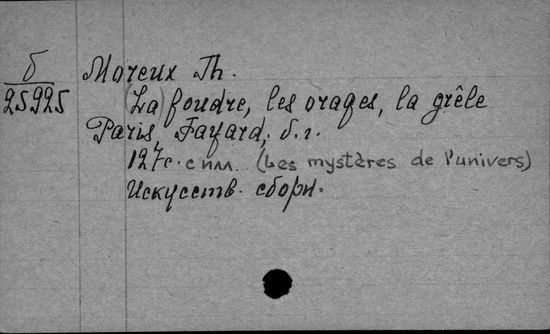 б
25925
Moreux Th.
(La) foudre, les orages, la grêle
Paris, Fayard, б.г.
127с. с илл. (Les mystères de l'univers)
Искусств. сборн.